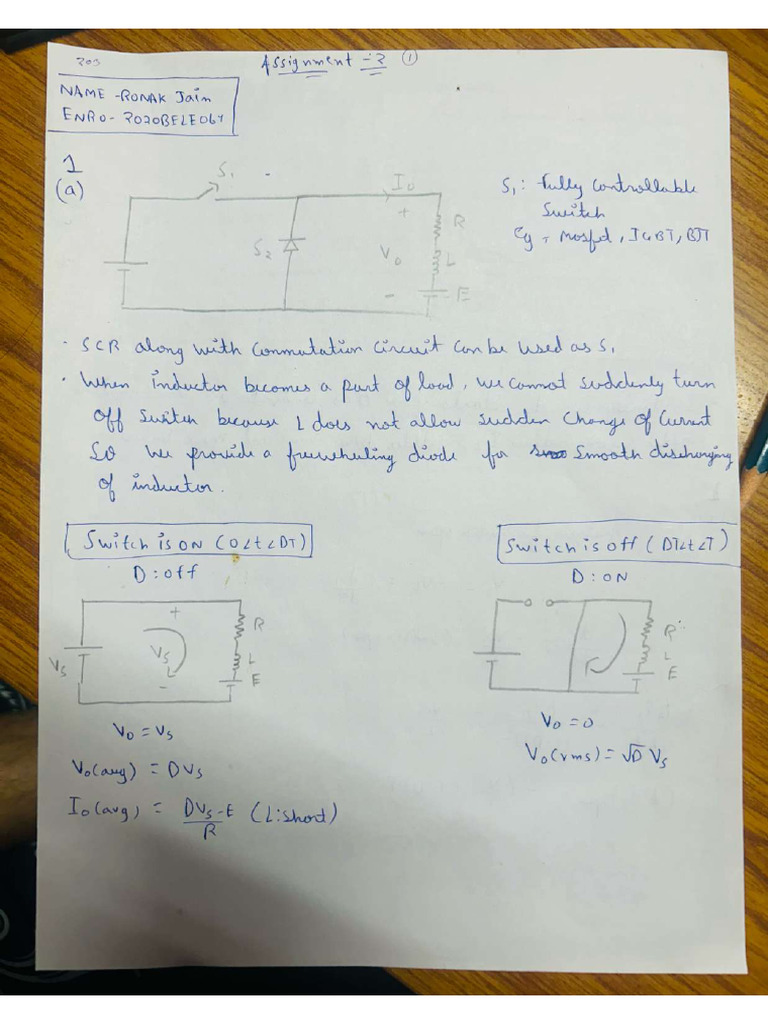 Assignment - 2 ①
NAME - RONAK Jain
ENRO - 2020BELE064
1
(a)
S₁
I₀
+
R
S₂
V₀
L
-
E
S₁: Fully Controllable
Switch
Eg - Mosfet, IGBT, BJT
· SCR along with Commutation Circuit can be used as S₁
· When inductor becomes a part of load, we cannot suddenly turn
off switch because L does not allow sudden change of current
So we provide a freewheeling diode for smooth discharging
of inductor.
Switch is ON (0<t<DT)
D : off
+
R
Vs
Vs
L
-
E
V₀ = Vs
V₀(avg) = DVs
I₀(avg) = DVs - E / R (L: short)
Switch is off (DT<t<T)
D : ON
R
L
E
V₀ = 0
V₀(rms) = √D Vs